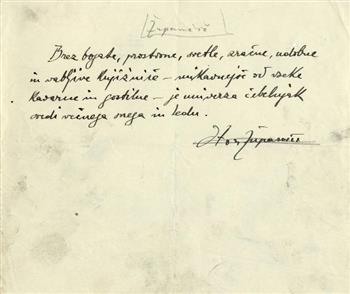 Župančič
Brez bogate, prostorne, svetle, zračne, udobne
in vabljive knjižnice – mikavnejše od vsake
kavarne in gostilne – je univerza čebelnjak
sredi večnega snega in ledu.
Oton Župančič